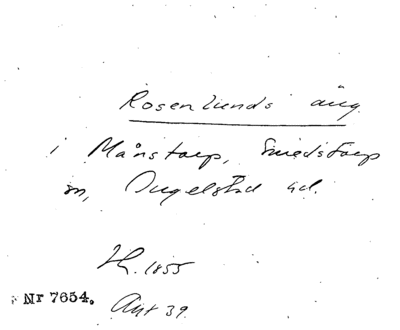 Rosenlunds äng
i Månstorp, Smedstorp
sn, Ingelstad hd.
H. 1855
Nr 7654.
Akt 39.